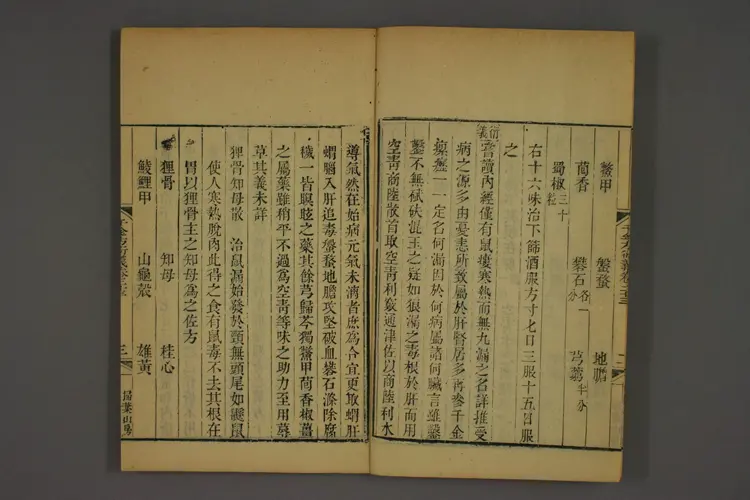 鱉甲 螌蝥 地膽
茴香 礬石各一分 芎藭半分
蜀椒三十粒
右十六味治下篩酒服方寸七日三服十五日服
之
衍義曾讀內經僅有鼠瘻寒熱而無九漏之名詳推受
病之源多由憂恚所致屬於肝腎居多再參千金
一一定名何漏因於何病屬諸何臟言雖鑿
鑿不無碔砆混玉之疑如狼漏之毒根於肝而用
空青商陸散首取空青利竅通津佐以商陸利水
導氣然在始病元氣未漓者庶為合宜更取蝟肝
蝟腦入肝追毒螌蝥地膽攻堅破血礬石滌除腐
穢一皆瞑眩之藥其餘芎歸芩獨鱉甲茴香椒薑
之屬藥雖稍平不過為空青等味之助力至用蓐
草其義未詳
狸骨知母散 治鼠漏始發於頸無頭尾如鼷鼠
使人寒熱脫肉此得之食有鼠毒不去其根在
胃以狸骨主之知母為之佐方
狸骨 知母 桂心
鯪鯉甲 山龜殼 雄黃
三 掃葉山房